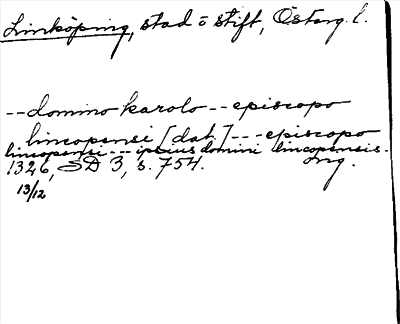 Linköping, stad o stift, Österg. l.
-- domino karolo -- episcopo
lincopensi [dat.] --- episcopo
lincopensi --- ipsius domini lincopensis.
1326, SD 3, s. 754. Ing.
13/12